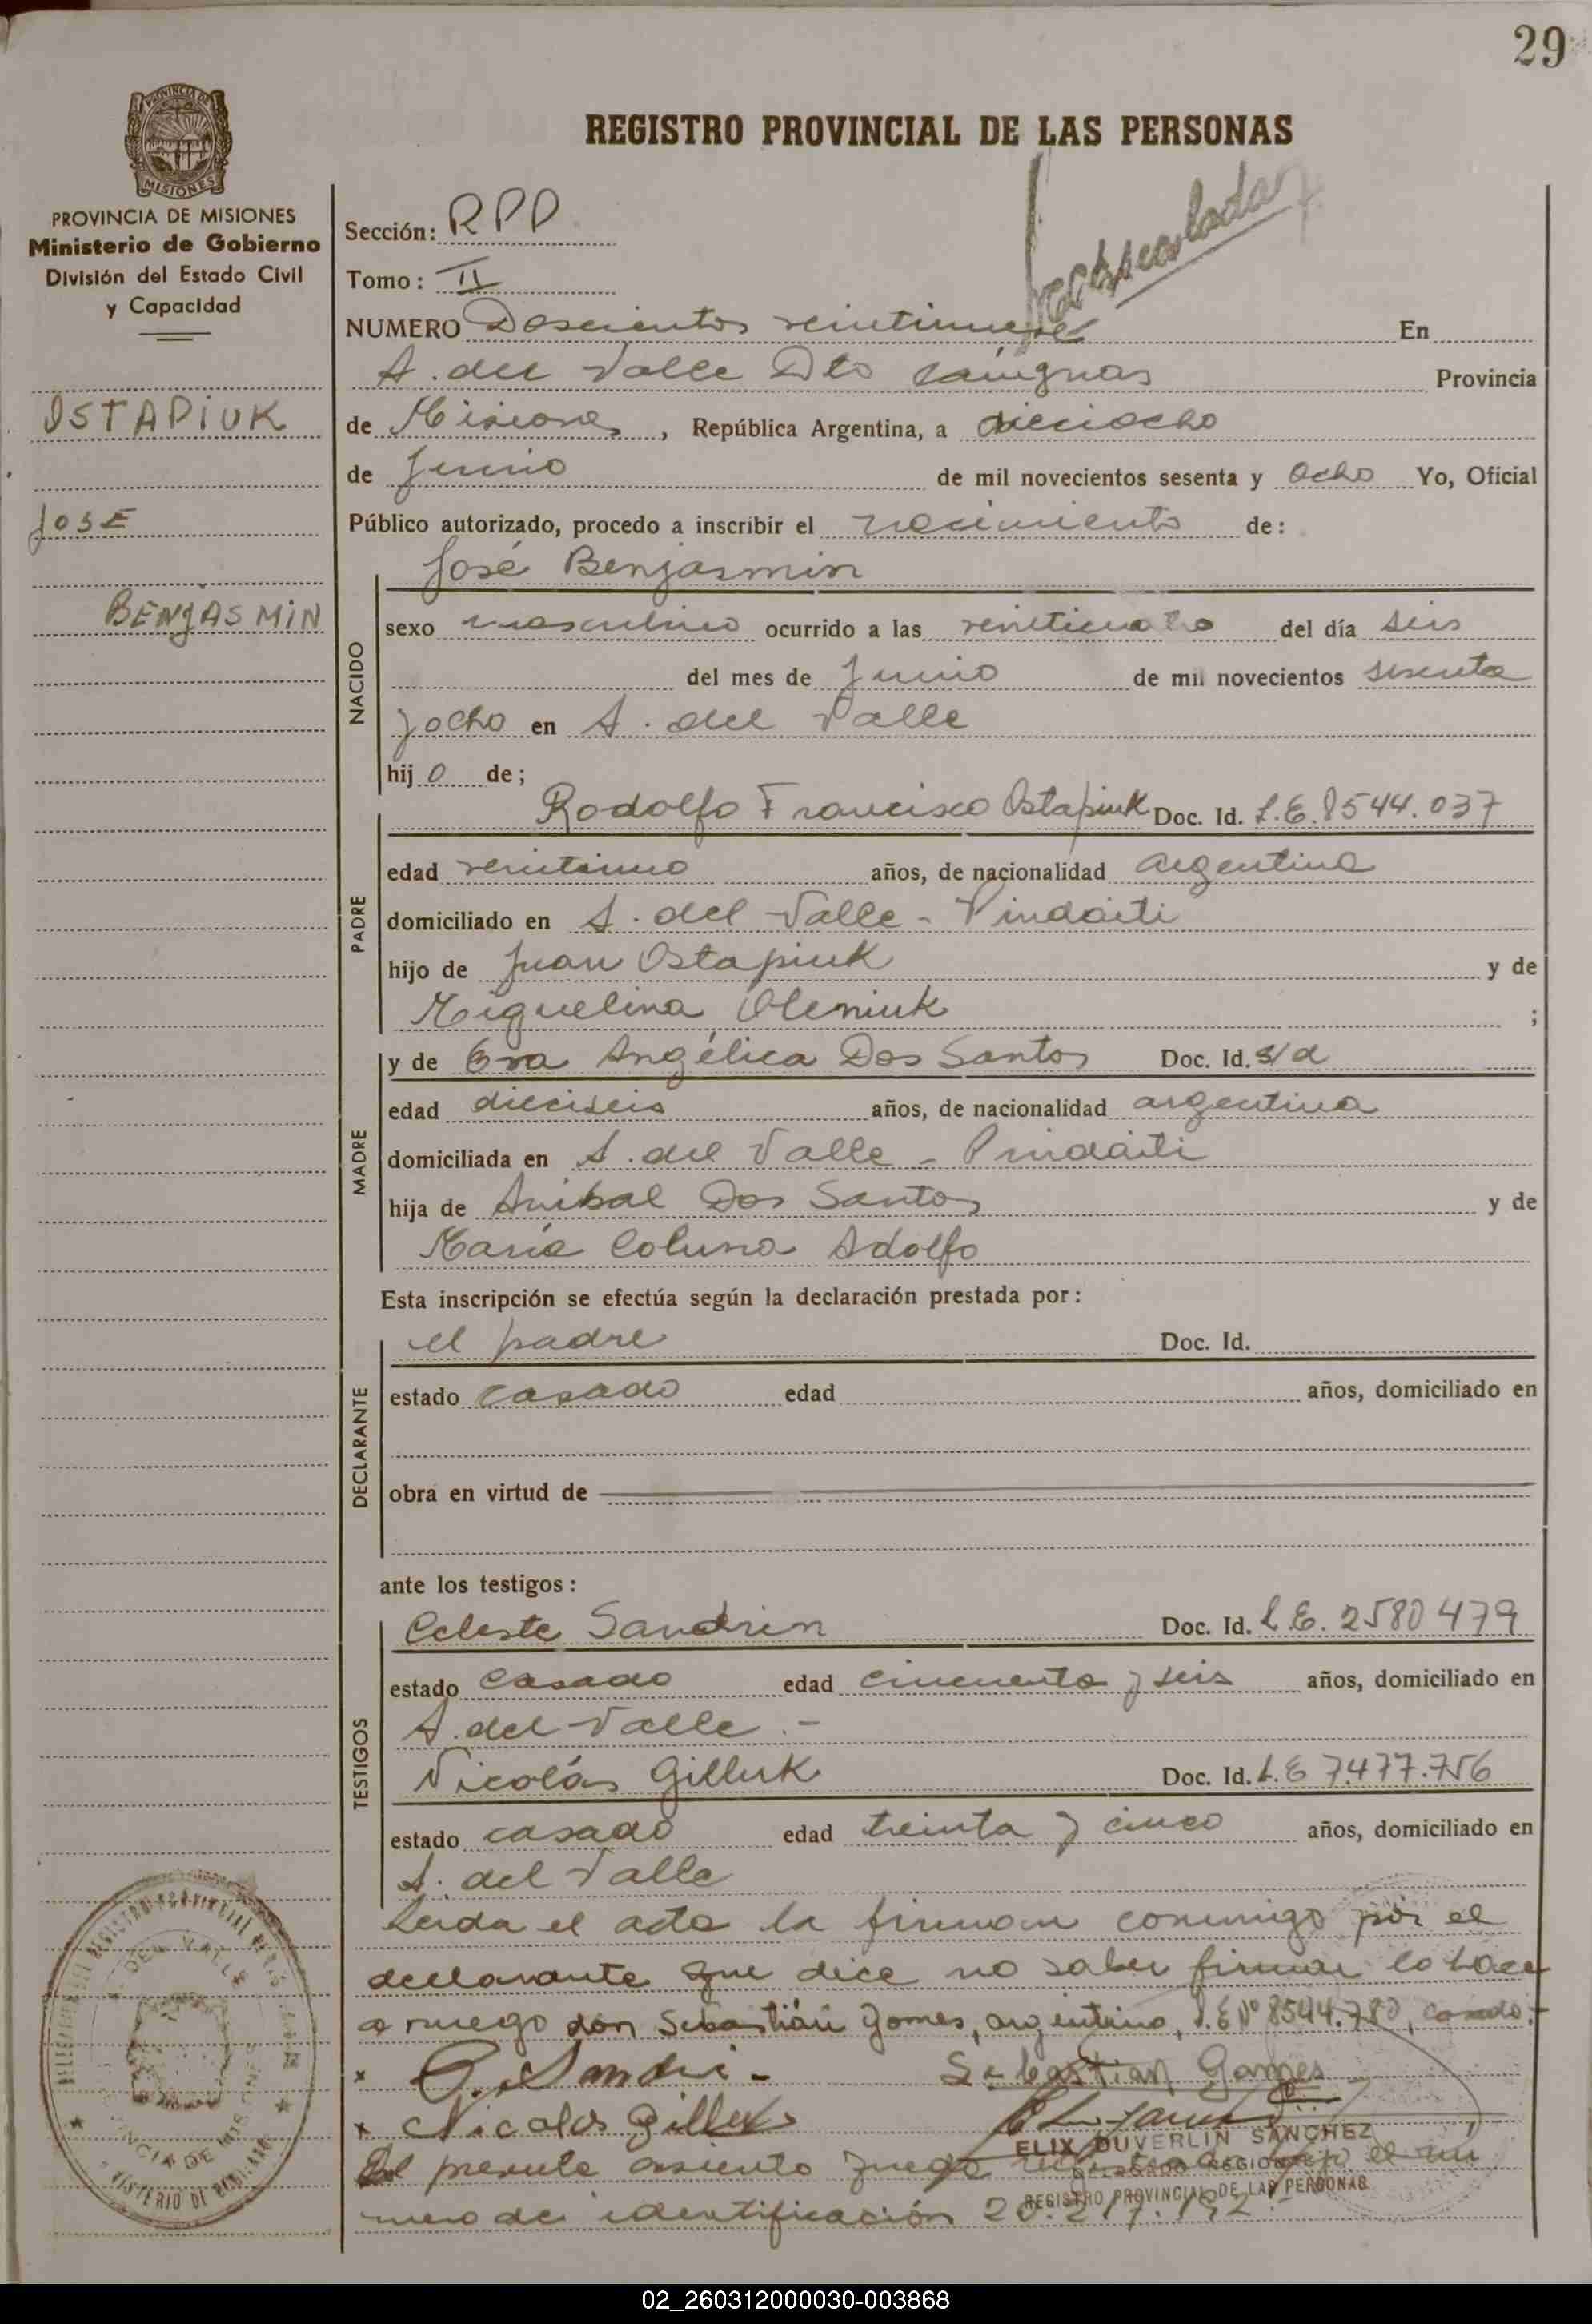 29
REGISTRO PROVINCIAL DE LAS PERSONAS
PROVINCIA DE MISIONES
PROVINCIA DE MISIONES
Ministerio de Gobierno
División del Estado Civil
y Capacidad
OSTAPIUK
JOSE
BENJASMIN
Sección: RPP
Tomo: II
NUMERO Doscientos veintinueve En
A. del Valle Dto Cainguas Provincia
de Misiones, República Argentina, a dieciocho
de Junio de mil novecientos sesenta y ocho Yo, Oficial
Público autorizado, procedo a inscribir el nacimiento de:
José Benjasmin
NACIDO
sexo masculino ocurrido a las veinticuatro del día seis
del mes de Junio de mil novecientos sesenta
y ocho en A. del Valle
hijo de;
PADRE
Rodolfo Francisco Ostapiuk Doc. Id. L.E. 8544.037
edad veintiuno años, de nacionalidad argentina
domiciliado en A. del Valle - Pindaiti
hijo de Juan Ostapiuk y de
Miguelina Oleniuk ;
MADRE
y de Eva Angélica Dos Santos Doc. Id. s/d
edad dieciseis años, de nacionalidad argentina
domiciliada en A. del Valle - Pindaiti
hija de Anibal Dos Santos y de
María Coluna Adolfo
Esta inscripción se efectúa según la declaración prestada por:
DECLARANTE
el padre Doc. Id.
estado casado edad años, domiciliado en
obra en virtud de
ante los testigos:
TESTIGOS
Celeste Sandrin Doc. Id. L.E. 2580479
estado casado edad cincuenta y seis años, domiciliado en
A. del Valle.-
Nicolás Gilluk Doc. Id. L.E 7.477.756
estado casado edad treinta y cinco años, domiciliado en
A. del Valle
Leida el acta la firman conmigo por el
declarante que dice no saber firmar lo hace
a ruego don Sebastián Gomes, argentino, L.E Nº 8544.780, casado.-
Sebastian Gomes
x Nicolas Gilluk
ELIX DUVERLIN SANCHEZ
DELEGADO REGIONAL
REGISTRO PROVINCIAL DE LAS PERSONAS
El presente asiento bajo el nú
mero de identificación 20.217.192
02_260312000030-003868